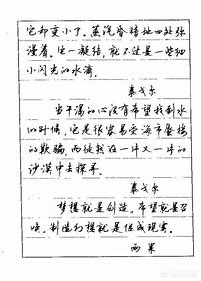 它却变小了。蒸汽昏暗地四处弥
漫着。它一凝结，就不过是一些细
小闪光的水滴。
泰戈尔
当干渴的心没有希望找到水
的时候，它是很容易受海市蜃楼
的欺骗，而徒然在一片又一片的
沙漠中去探寻。
泰戈尔
梦想就是创造。希望就是召
唤。制造幻想就是促成现实。
雨果